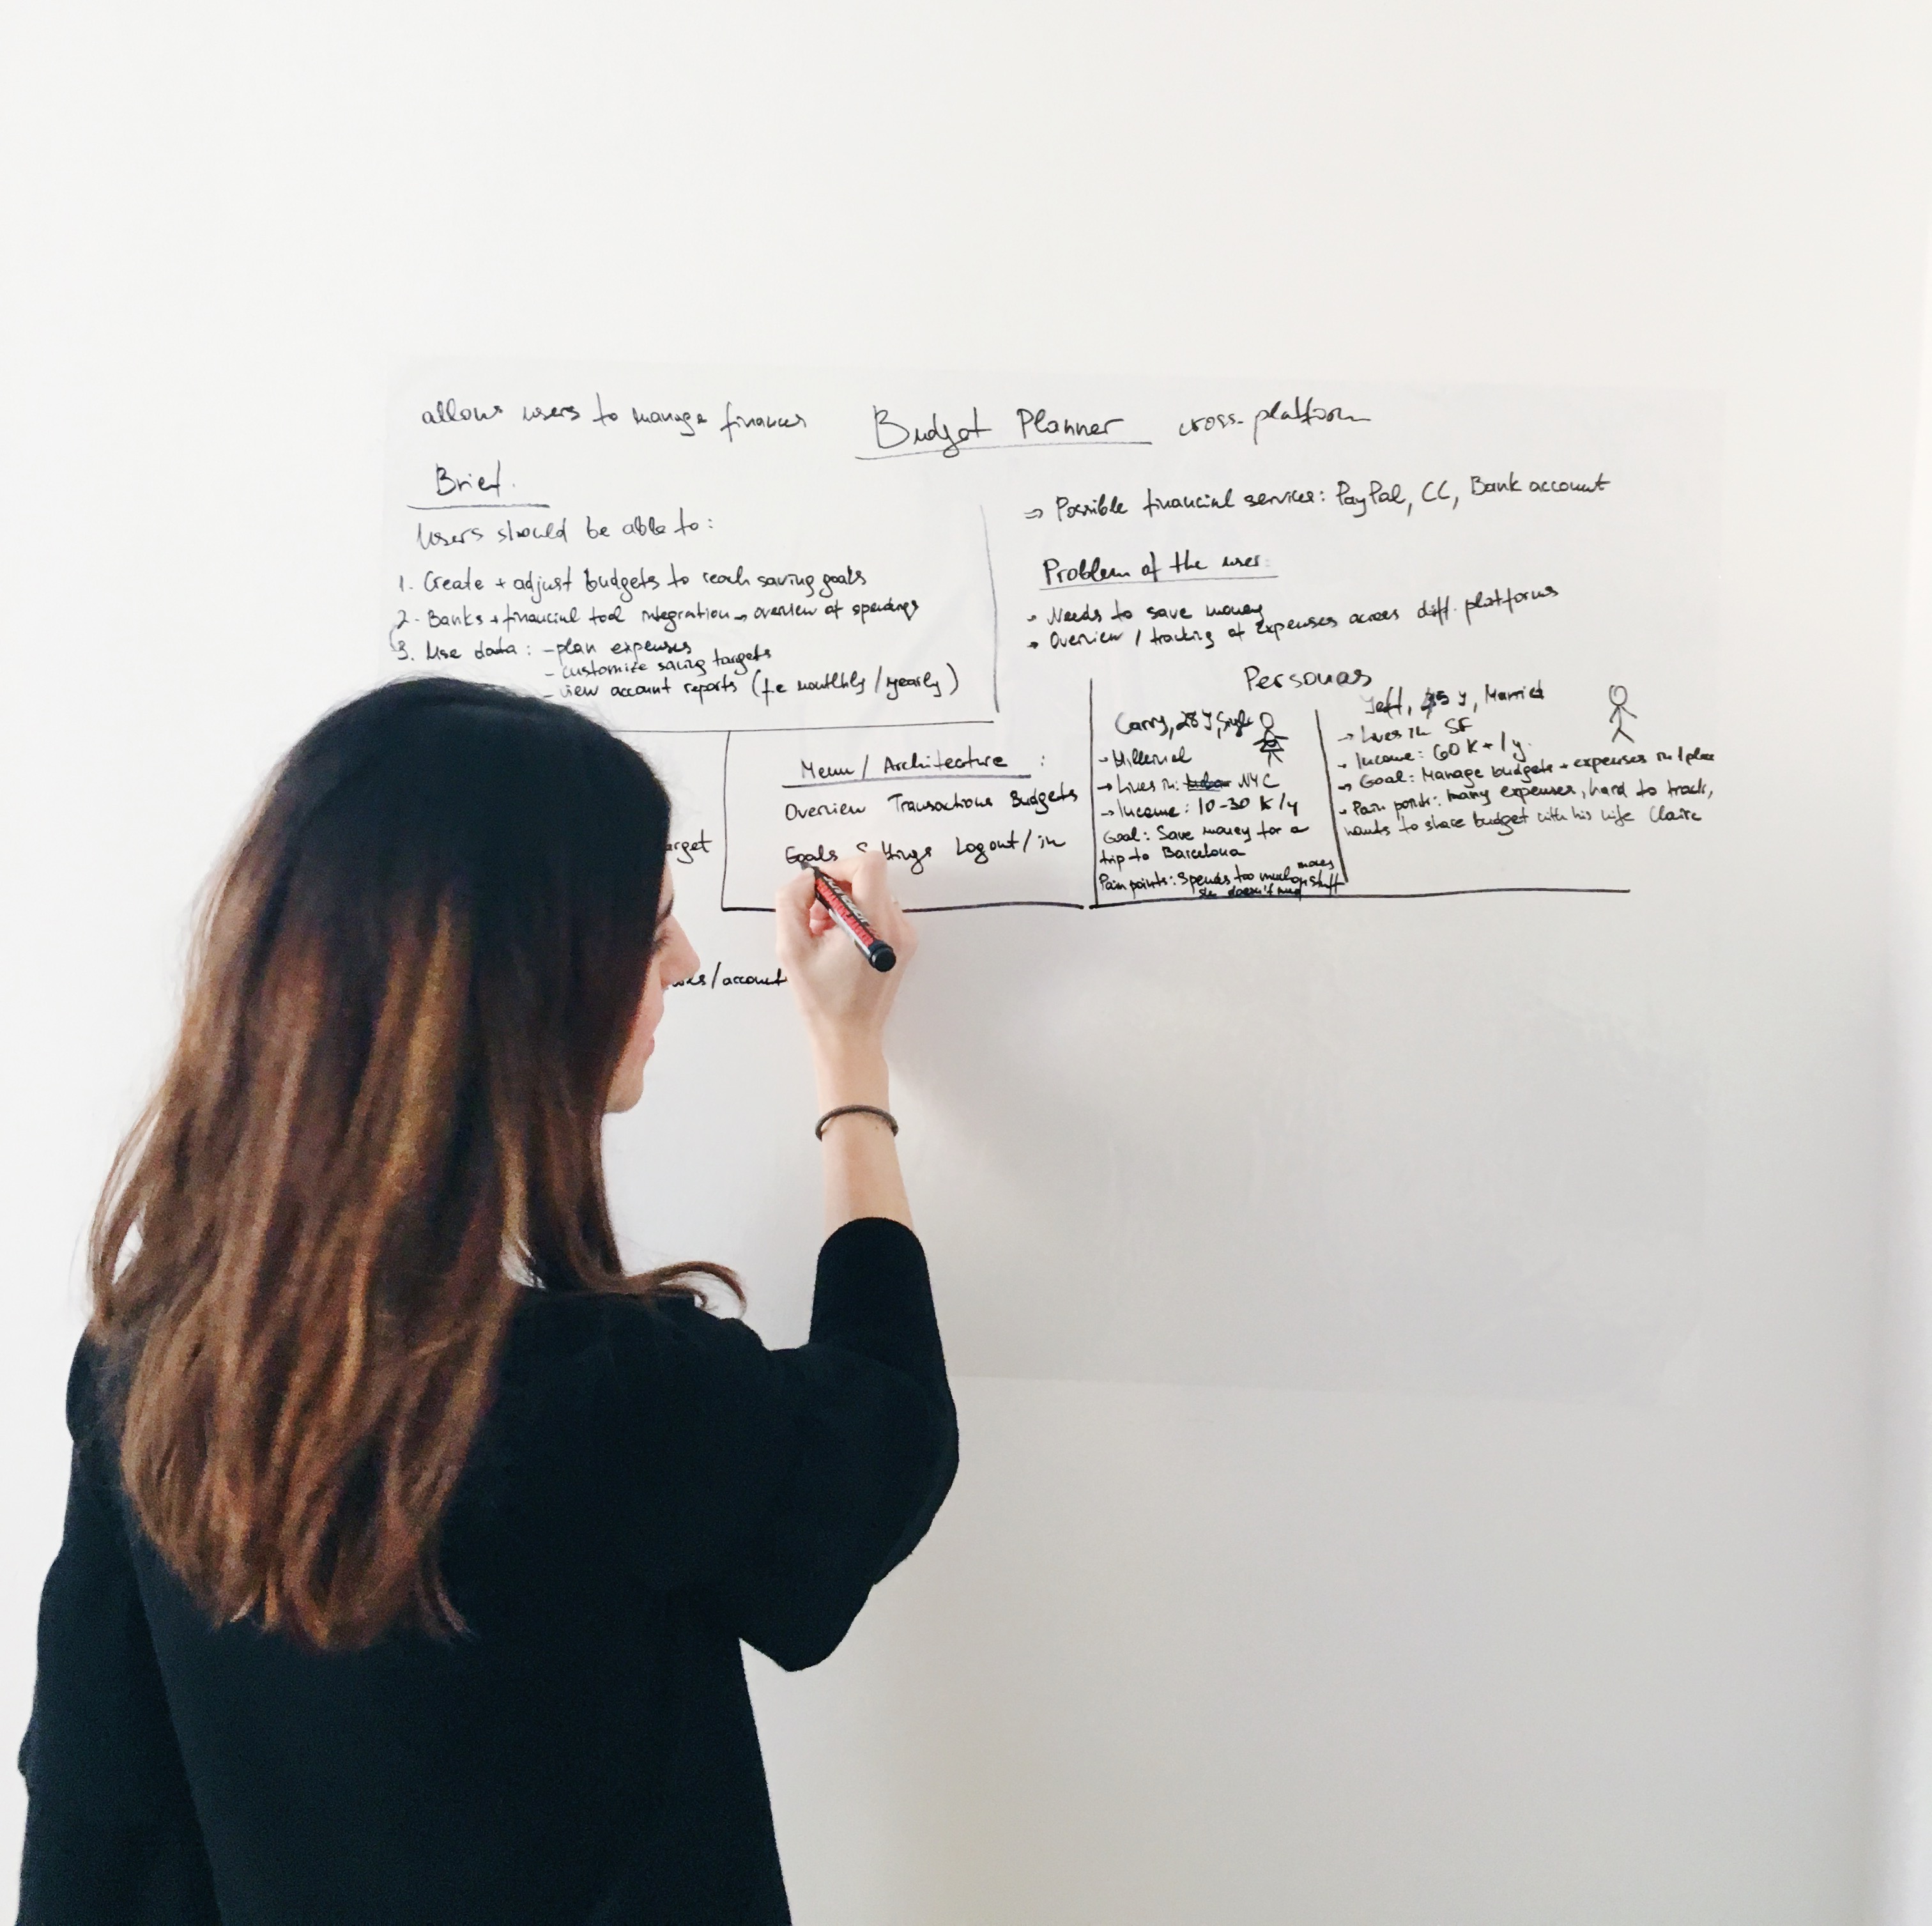 allows users to manage finances Budget Planner cross-platform
Brief.
Users should be able to:
1. Create + adjust budgets to reach saving goals
2. Banks + financial tool integration → overview of spendings
3. Use data: - plan expenses
- customize saving targets
- view account reports (f.e monthly/yearly)
⇒ Possible financial services: PayPal, CC, Bank account
Problem of the user:
→ Needs to save money
→ Overview / tracking of expenses across diff. platforms
Menu / Architecture :
Overview Transactions Budgets
Goals Settings Logout/in
Personas
Carry, 28 y, Single
→ Millenial
→ Lives in: NYC
→ Income: 10-30 K/y
Goal: Save money for a
trip to Barcelona
Pain points: Spends too much money on stuff
she doesn't need
Jeff, 45 y, Married
→ Lives in SF
→ Income: 60 K+/y.
→ Goal: Manage budgets + expenses in 1 place
→ Pain points: many expenses, hard to track,
wants to share budget with his wife Claire
/account